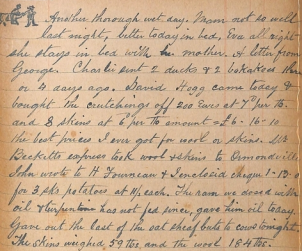 Another thorough wet day. Mam not so well
last night, better today in bed, Eva all right
she stays in bed with mother. A letter from
George. Charlie sent 2 ducks & 2 kakakas
or 4 days ago. David Hogg came today &
bought the crutchings off 200 Ewes at 7d per lb.
and 8 skins at 6 per lb amount = £6-16-10
the best prices I ever got for wool or skins. Mr
Becketts express took wool & skins to Ormondville
John wrote to H. & Inclosed cheque 1-13-0
for 3 sks potatoes at 11/ each. The ram we dosed with
oil & turpentine has not fed since, gave him oil today.
Gave out the last of the oat sheaf butts to cows tonight.
The skins weighed 59 lbs and the wool 184 lbs.